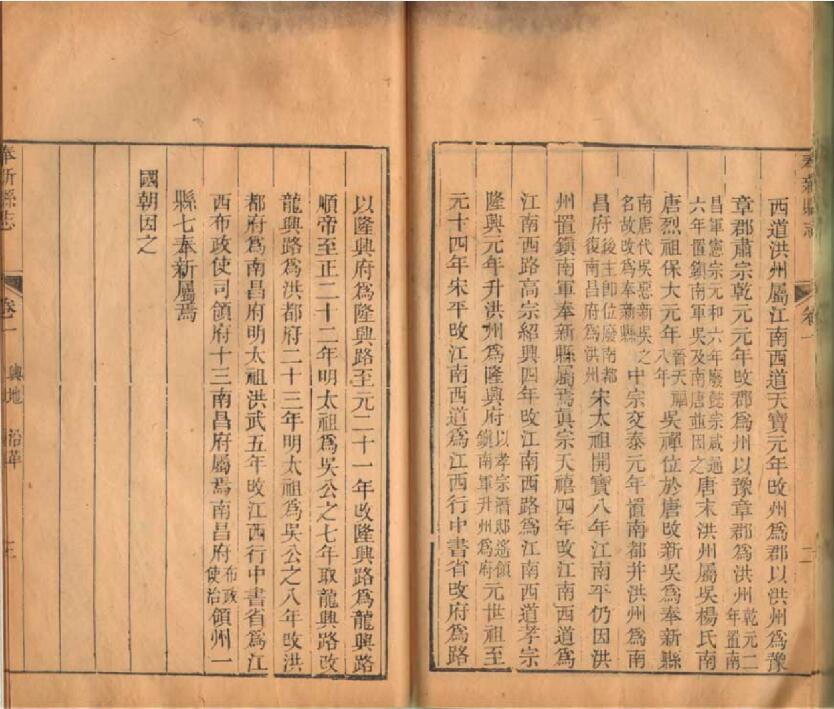 西道洪州屬江南西道天寶元年改州爲郡以洪州爲豫
章郡肅宗乾元元年改郡爲州以豫章郡爲洪州乾元二年置南
昌軍憲宗元和六年廢懿宗咸通六年置鎮南軍吳及南唐並因之唐末洪州屬吳楊氏南
唐烈祖保大元年晉天福八年吳禪位於唐改新吳爲奉新縣
南唐代吳惡新吳之名故改爲奉新縣中宗交泰元年置南都并洪州爲南
昌府後主卽位廢南都復南昌府爲洪州宋太祖開寶八年江南平仍因洪
州置鎮南軍奉新縣屬焉眞宗天禧四年改江南西道爲
江南西路高宗紹興四年改江南西路爲江南西道孝宗
隆興元年升洪州爲隆興府以孝宗潛邸遙領鎮南軍升州爲府元世祖至
元十四年宋平改江南西道爲江西行中書省改府爲路
奉新縣志
卷一
二
以隆興府爲隆興路至元二十一年改隆興路爲龍興路
順帝至正二十二年明太祖爲吳公之七年取龍興路改
龍興路爲洪都府二十三年明太祖爲吳公之八年改洪
都府爲南昌府明太祖洪武五年改江西行中書省爲江
西布政使司領府十三南昌府屬焉南昌府布政使治領州一
縣七奉新屬焉
國朝因之
奉新縣志
卷一
輿地
沿革
三